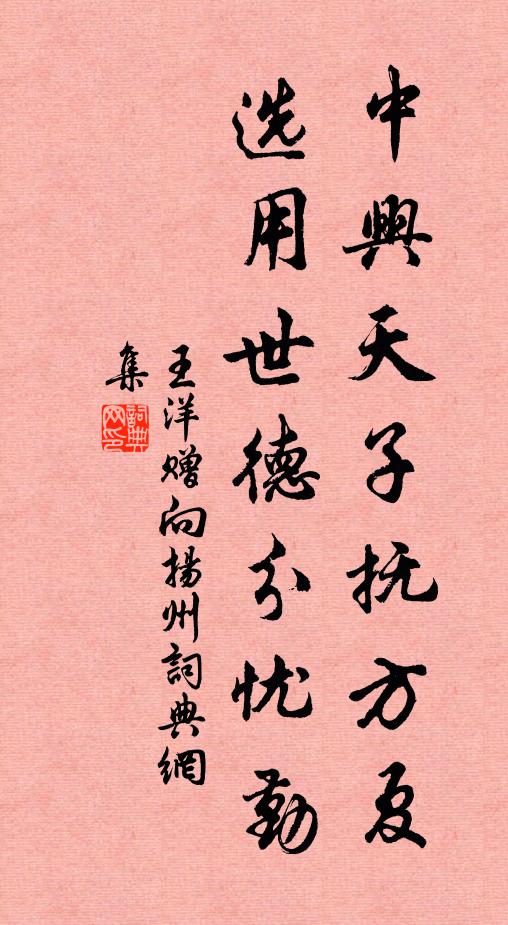 中興天子抚方夏
选用世德分忧勤
王洋赠向揚州詞典網
集
詞典網印